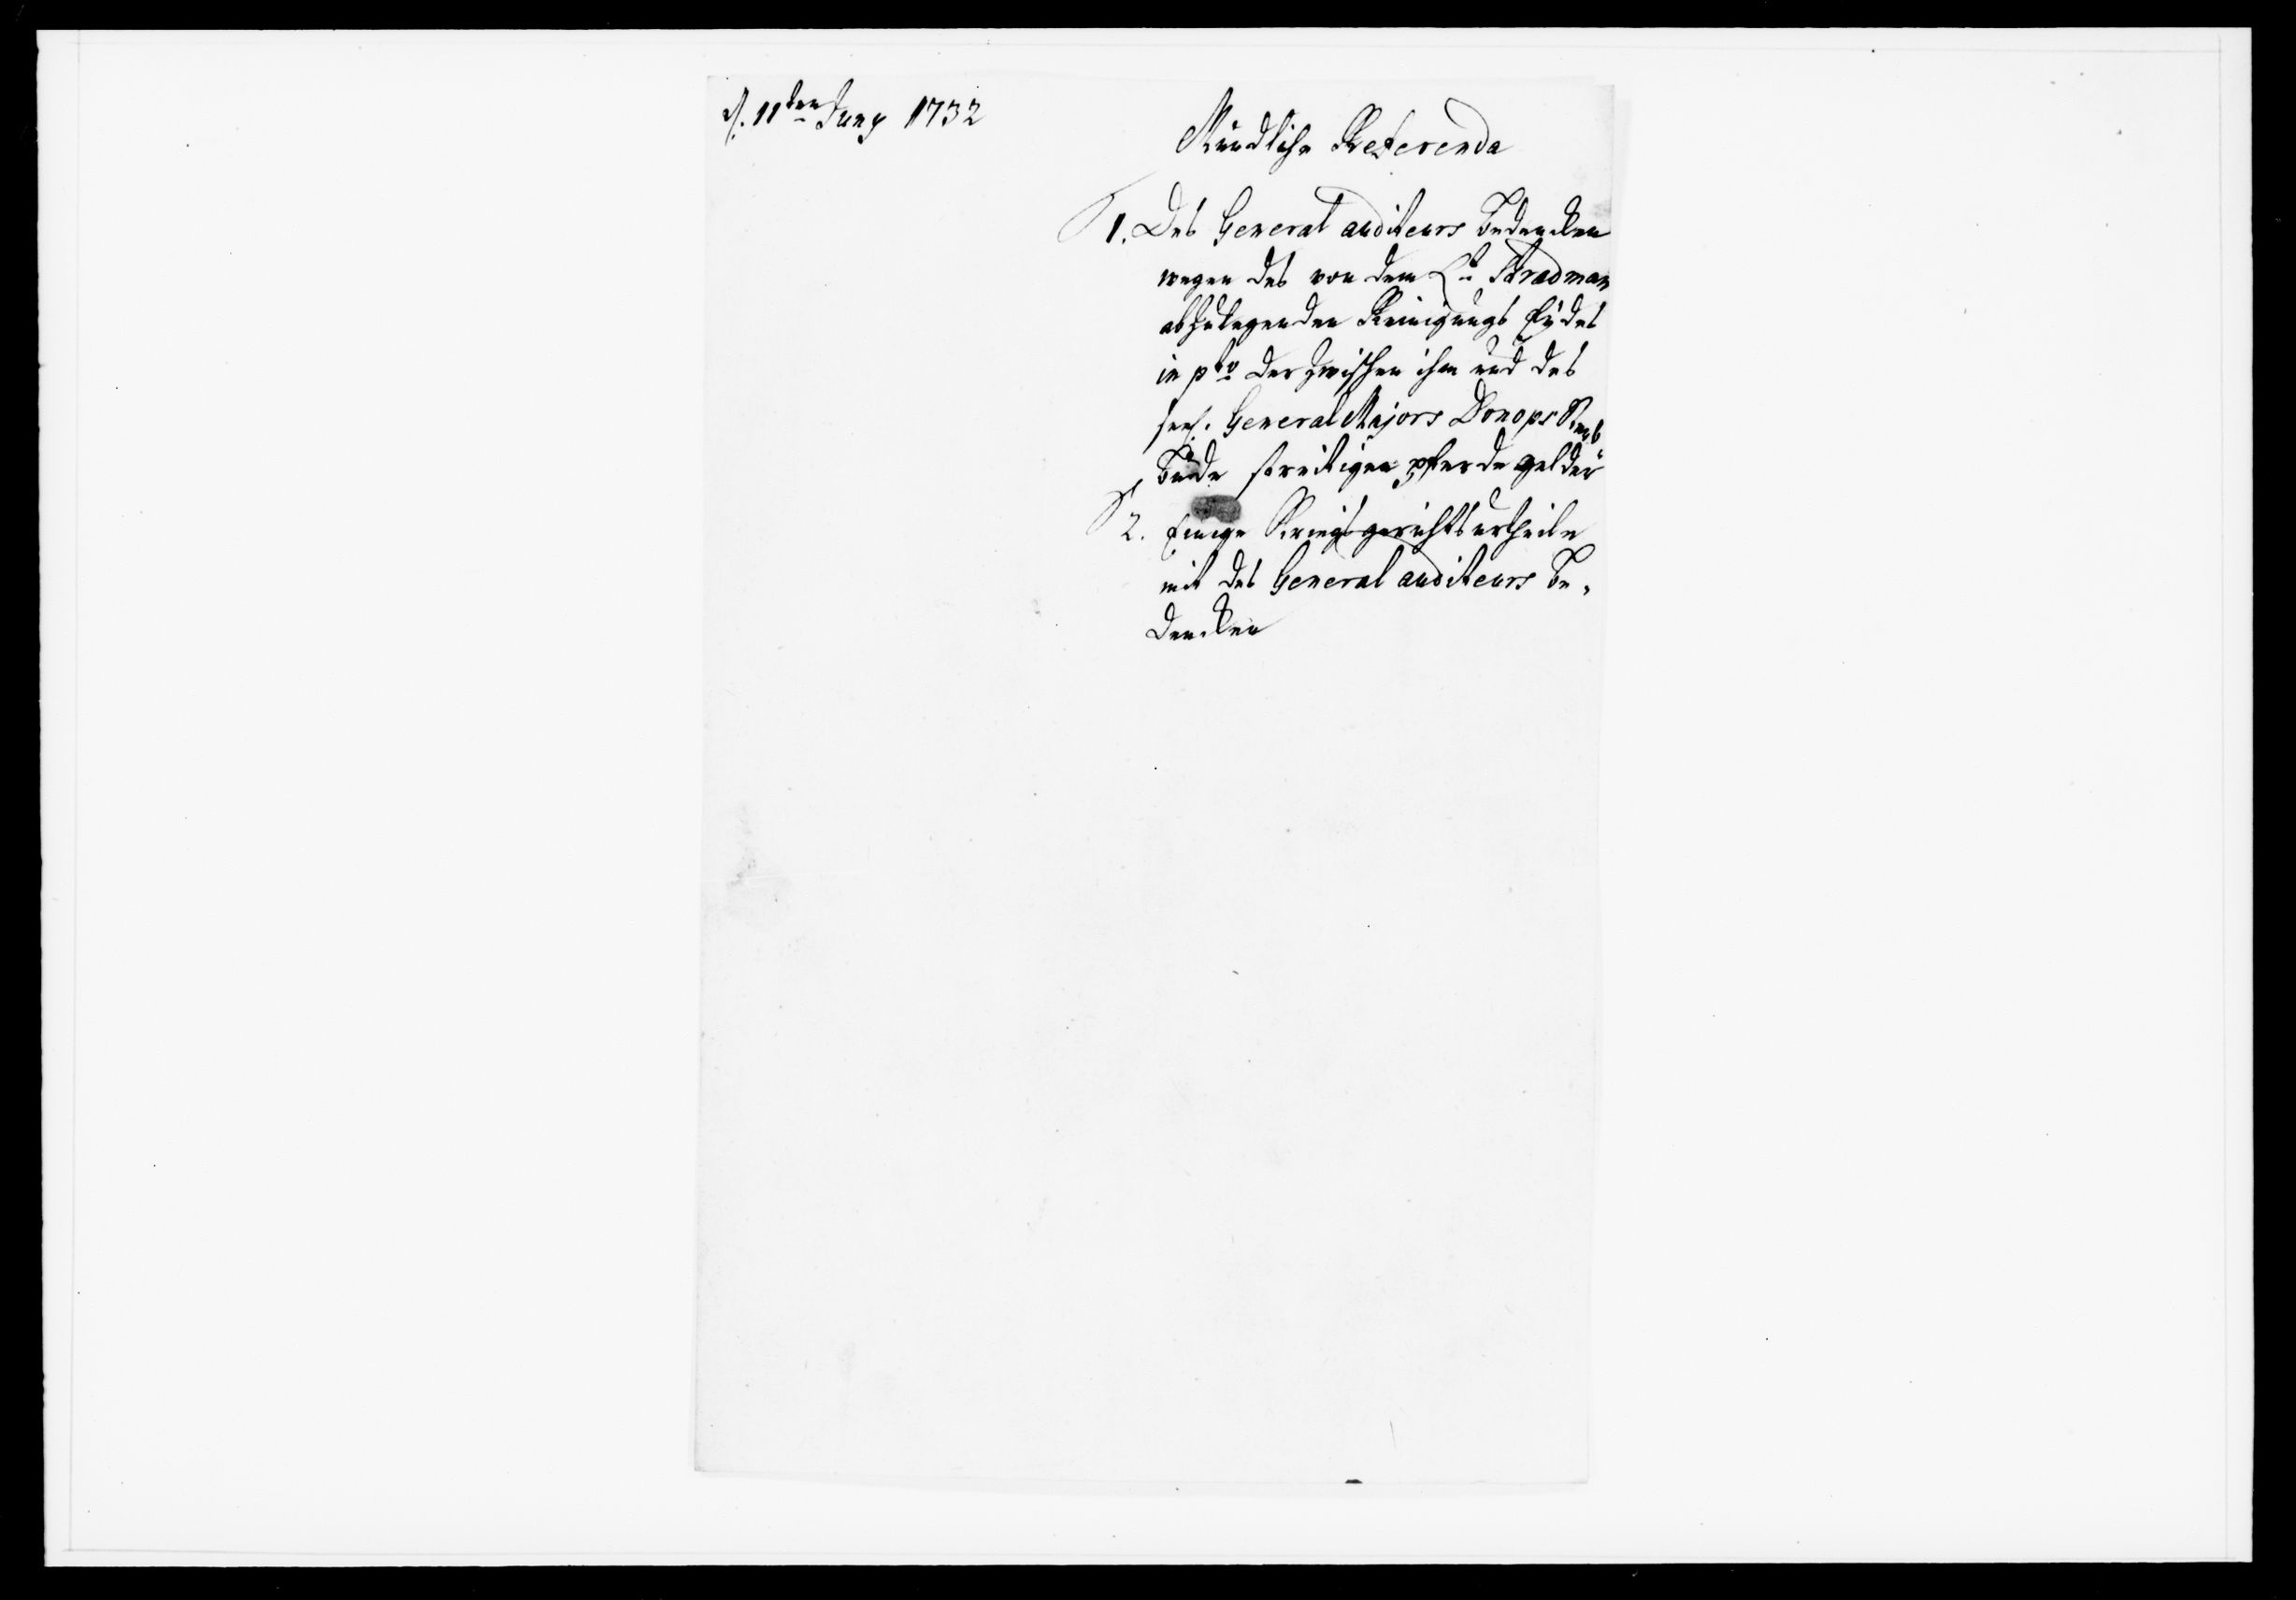 d. 11ten Juny 1732
Mündliche Referenda
1. Des General auditeurs Bedencken
wegen des von dem Lt Stradman
abzulegenden Reinigungs Eydes
in pto der zwischen ihm und des
seel. General Majors Donops Sterb
Bude streitigen pferde gelder
2. Einige Kriegsgerichtsurtheile
mit des General auditeurs Be-
dencken